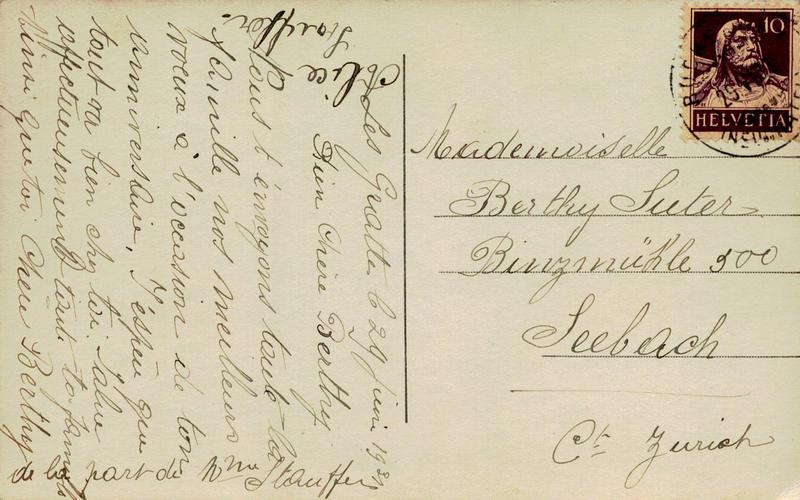 Les Gratte le 29 Juin 1931
Bien Chère Berthy
Nous t'envoyons toute la
famille nos meilleurs
voeux à l'occasion de ton
Anniversaire. J'espère que
tout va bien chez toi. Salue
affectueusement toute ta famille
Ainsi que toi Chere Berthy
de la part de Mme Stauffer
Alice
Stauffer.
Mademoiselle
Berthy Suter
Binzmühle 500
Seebach
Ct. Zurich
10
HELVETIA